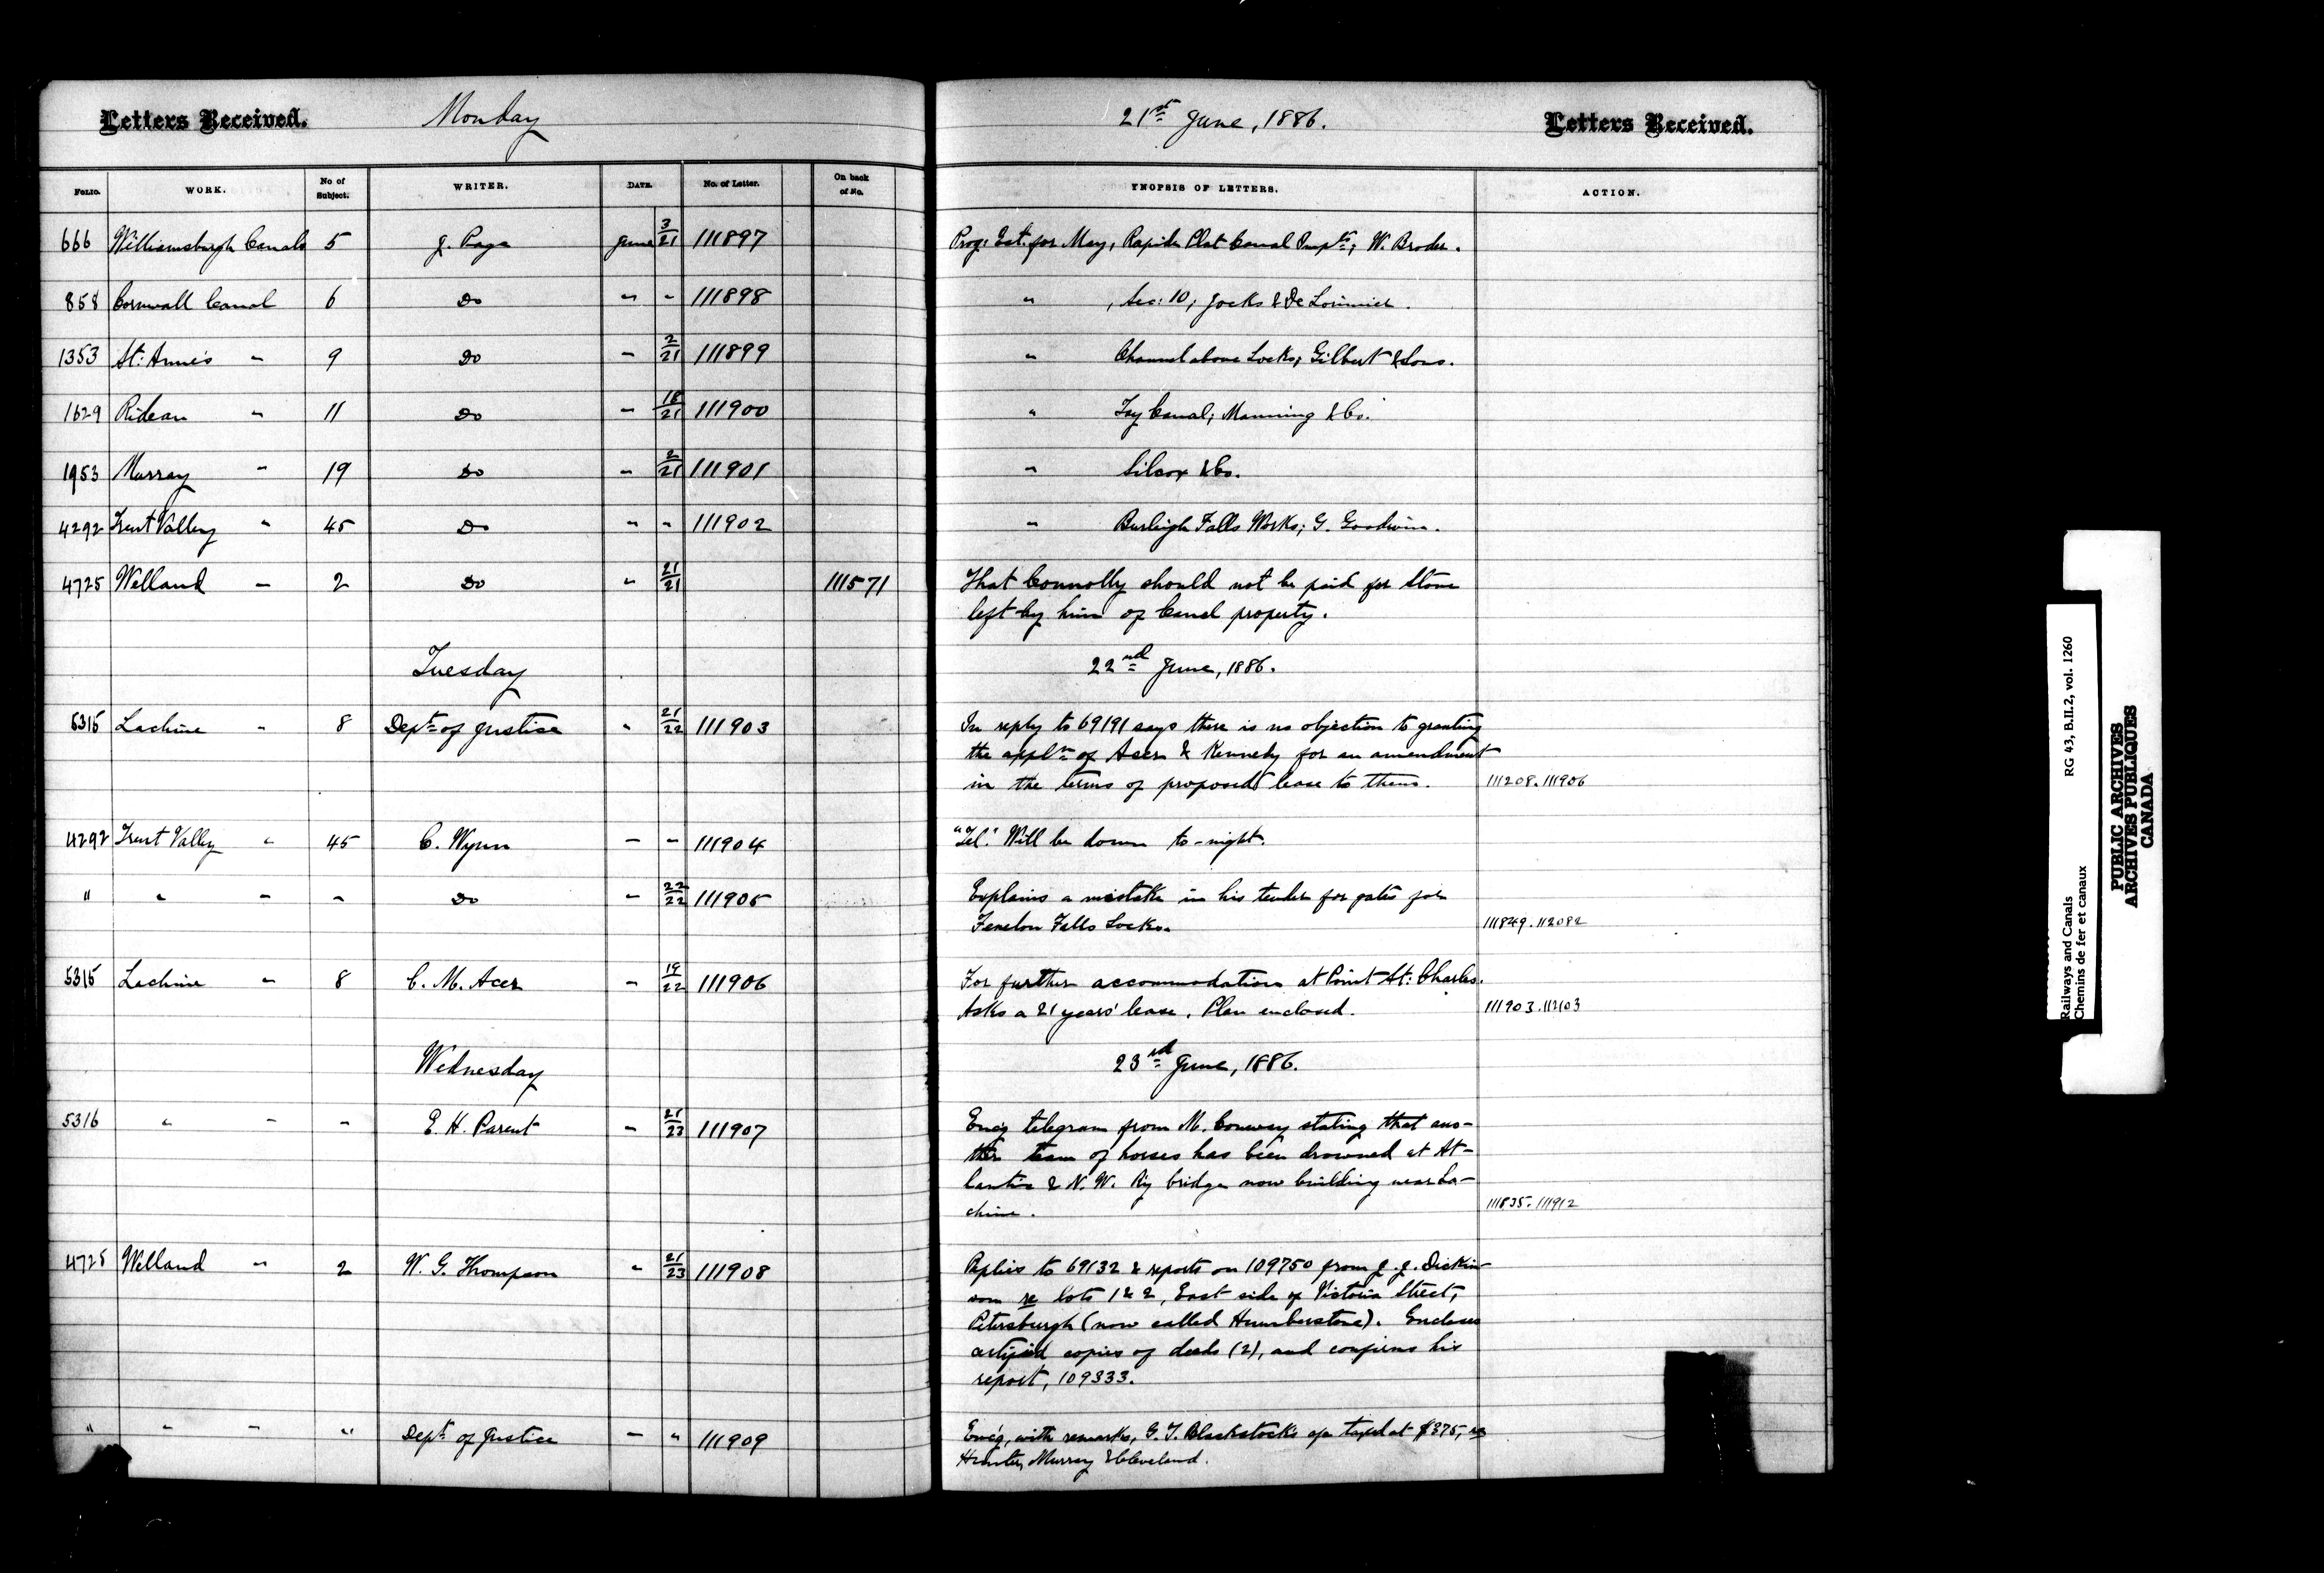 Letters Received. Monday 21st June, 1886. Letters Received.
FOLIO. WORK. No of Subject. WRITER. DATE. No. of Letter. On back of No. YNOPSIS OF LETTERS. ACTION.
666 Williamsburgh Canals 5 J. Page June 3/21 111897 Prog: Est: for May, Rapide Plat Canal Impts; W. Broder.
858 Cornwall Canal 6 Do " " 111898 " , Sec: 10; Jocks & De Lorimier.
1353 St: Anne's " 9 Do " 2/21 111899 " Channel above Locks; Gilbert & Sons.
1629 Rideau " 11 Do " 18/21 111900 " Tay Canal; Manning & Co.
1953 Murray " 19 Do " 2/21 111901 " Silcox & Co.
4292 Trent Valley " 45 Do " " 111902 " Burleigh Falls Works; G. Goodwin.
4725 Welland " 2 Do " 21/21 111571 That Connolly should not be paid for stone
left by him of Canal property.
Tuesday 22nd June, 1886.
5315 Lachine " 8 Dept of Justice " 21/22 111903 In reply to 69191 says there is no objection to granting
the appln of Acer & Kennedy for an amendment
in the terms of proposed lease to them. 111208. 111906
4292 Trent Valley " 45 C. Wynn " " 111904 "Tel". Will be down to-night.
" " " " Do " 22/22 111905 Explains a mistake in his tender for gates for
Fenelon Falls Locks. 111849. 112082
5315 Lachine " 8 C. M. Acer " 19/22 111906 For further accommodation at Point St: Charles.
Asks a 21 years' lease. Plan enclosed. 111903. 112103
Wednesday 23rd June, 1886.
5316 " " " E. H. Parent " 21/23 111907 Enc'g telegram from M. Conway stating that ano-
ther team of horses has been drowned at At-
lantic & N. W. Ry bridge now building near La-
chine. 111835. 111912
4725 Welland " 2 W. G. Thompson " 21/23 111908 Replies to 69132 & reports on 109750 from J. J. Dickin-
son re lots 1 & 2, East side of Victoria Street,
Petersburgh (now called Humberstone). Encloses
certified copies of deeds (2), and confirms his
report, 109333.
" " " " Dept of Justice " " 111909 Enc'g, with remarks, G. T. Blackstock's a/c taxed at $375, re
Hunter, Murray & Cleveland.
Railways and Canals RG 43, B.II.2, vol. 1260
Chemins de fer et canaux
PUBLIC ARCHIVES
ARCHIVES PUBLIQUES
CANADA